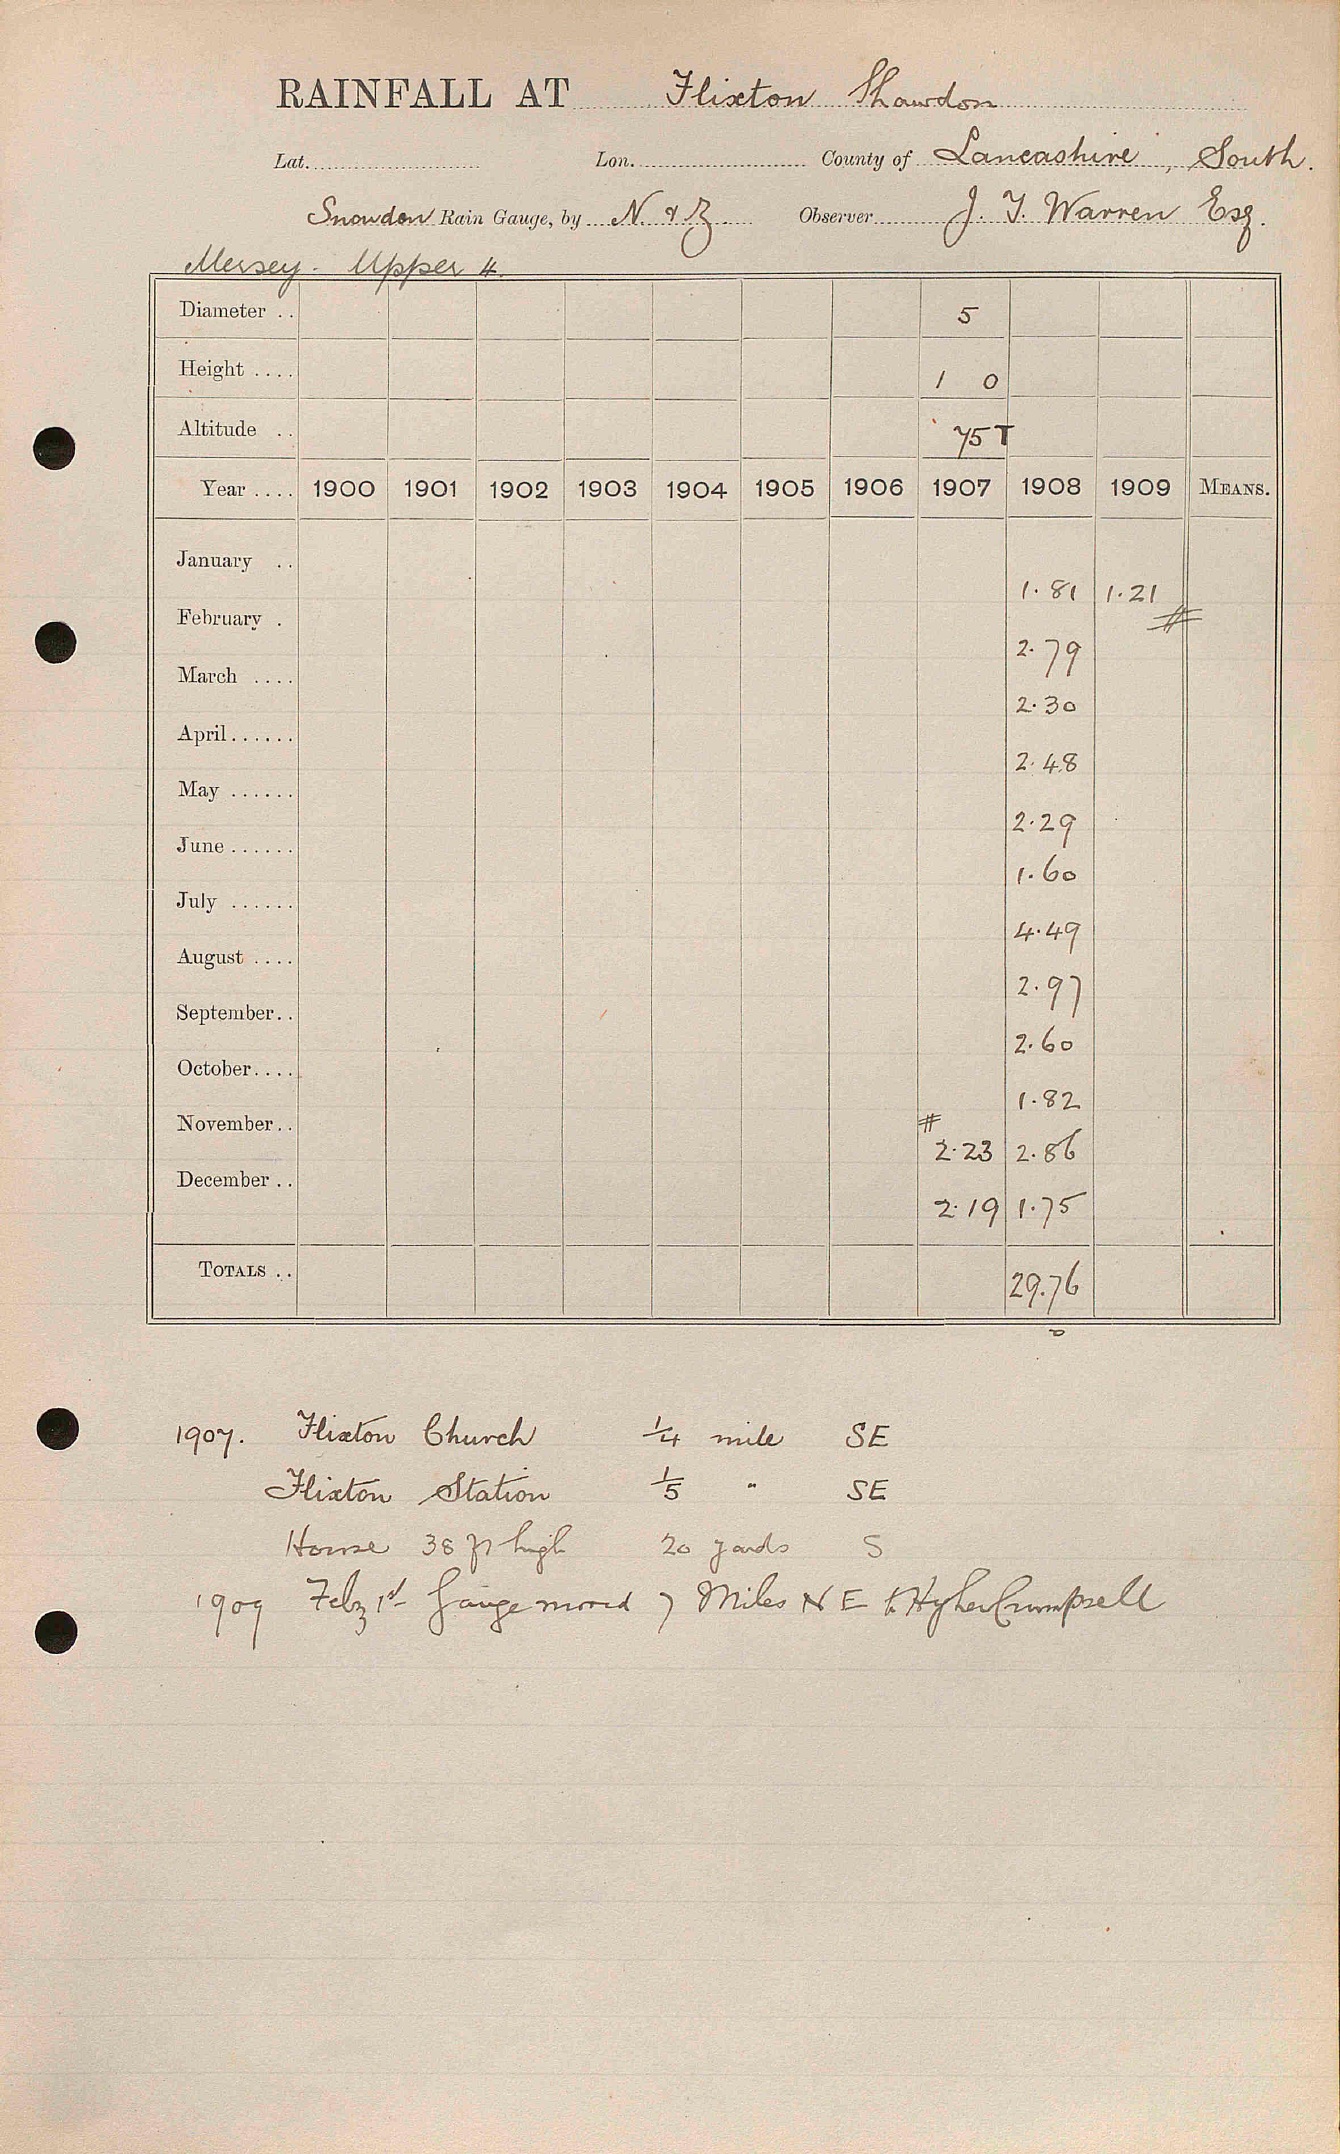 RAINFALL AT Flixton Shawdon
Lat. Lon. County of Lancashire, South.
Snowdon Rain Gauge, by N. & Z Observer J. T. Warren Esq.
Mersey. Upper 4.
Diameter .. 5
Height .... 1 0
Altitude .. 75 T
Year .... 1900 1901 1902 1903 1904 1905 1906 1907 1908 1909 MEANS.
January ..
1.81 1.21
February . #
2.79
March ....
2.30
April......
2.48
May ......
2.29
June ......
1.60
July ......
4.49
August ....
2.97
September..
2.60
October....
1.82
November.. #
2.23 2.86
December ..
2.19 1.75
TOTALS .. 29.76
1907. Flixton Church ¼ mile SE
Flixton Station 1/5 " SE
House 38 ft high 20 yards S
1909 Feby 1st Gauge moved 7 Miles N E to Higher Crumpsell